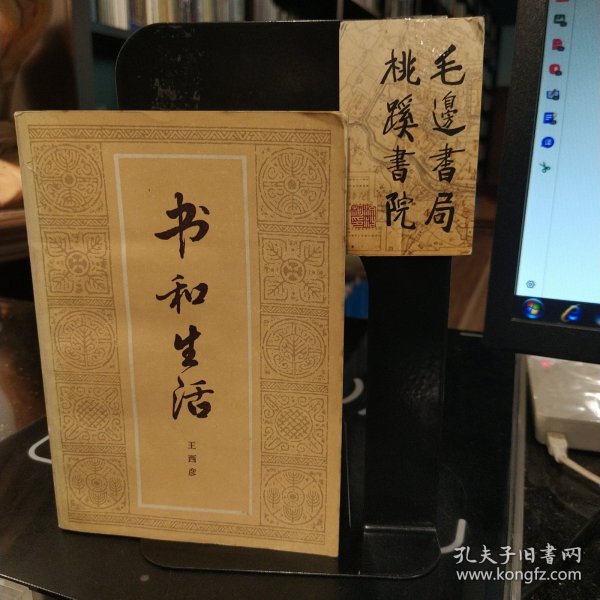 书和生活
王西彦
毛邊書局
桃蹊書院
孔夫子旧書网
www.kongfz.com